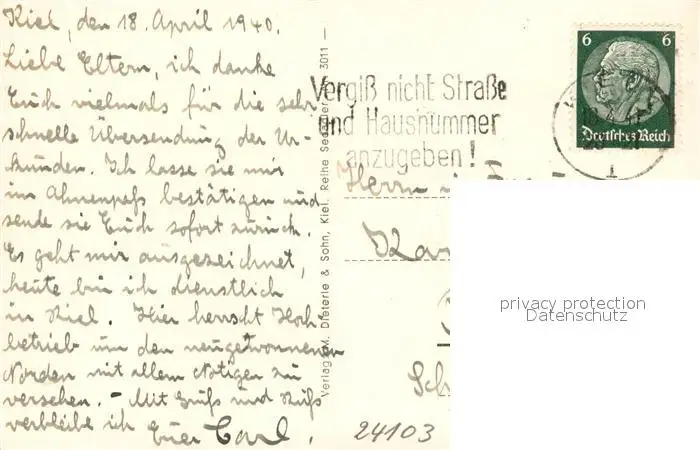 Kiel, den 18. April 1940.
Liebe Eltern, ich danke
Euch vielmals für die sehr
schnelle Übersendung der Ur-
kunden. Ich lasse sie mir
im Ahnenpaß bestätigen und
sende sie Euch sofort zurück.
Es geht mir ausgezeichnet,
heute bin ich dienstlich
in Kiel. Hier herrscht Hoch-
betrieb um den neugewonnenen
Norden mit allem Nötigen zu
versehen. - Mit Gruß und Kuß
verbleibe ich Euer Carl.
Verlag: M. Dieterle & Sohn, Kiel. Reihe 3011 —
Vergiß nicht Straße
und Hausnummer
anzugeben!
6 6
Deutsches Reich
Herrn
24103
privacy protection
Datenschutz